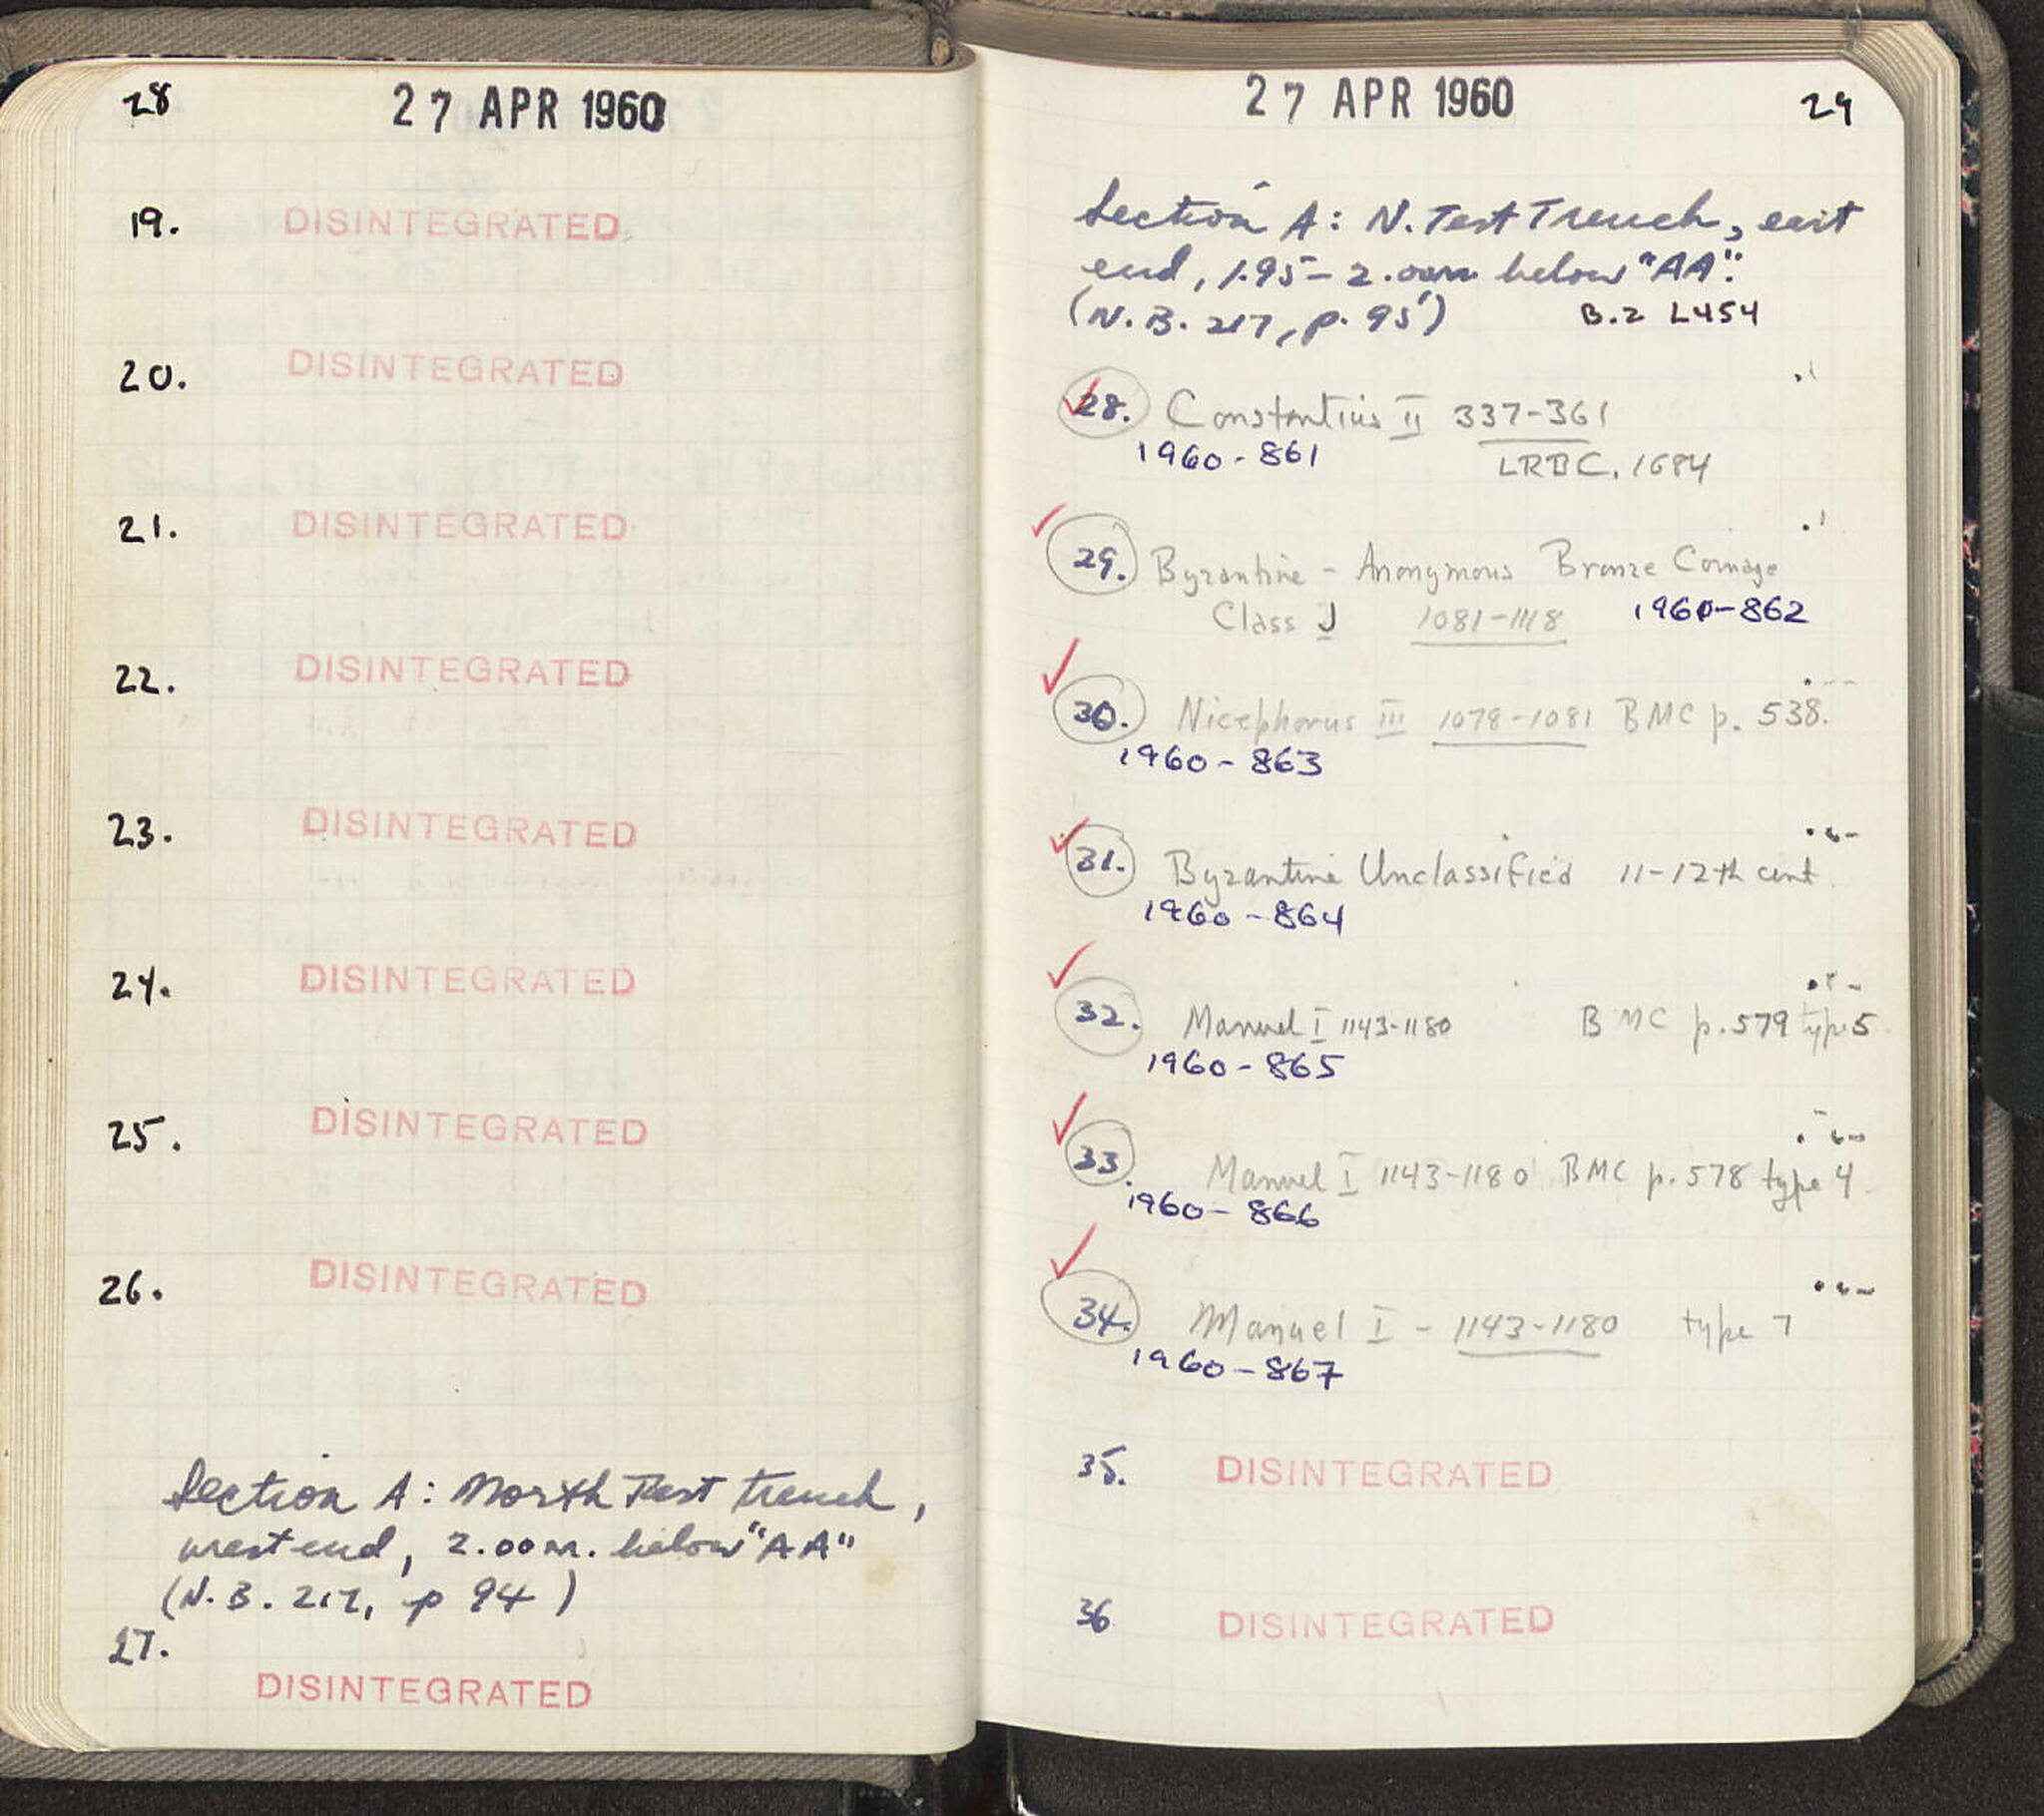 28 27 APR 1960
19. DISINTEGRATED
20. DISINTEGRATED
21. DISINTEGRATED
22. DISINTEGRATED
23. DISINTEGRATED
24. DISINTEGRATED
25. DISINTEGRATED
26. DISINTEGRATED
Section A: North Test Trench,
west end, 2.00m. below "AA"
(N.B. 217, p 94)
27.
DISINTEGRATED
27 APR 1960 29
Section A: N. Test Trench, east
end, 1.95-2.00m below "AA".
(N.B. 217, p. 95) B.2 L454
28. Constantius II 337-361
1960-861 LRBC. 1684
29. Byzantine - Anonymous Bronze Coinage
Class J 1081-1118 1960-862
30. Nicephorus III 1078-1081 BMC p. 538.
1960-863
31. Byzantine Unclassified 11-12th cent.
1960-864
32. Manuel I 1143-1180 BMC p. 579 type 5
1960-865
33. Manuel I 1143-1180 BMC p. 578 type 4
1960-866
34. Manuel I - 1143-1180 type 7
1960-867
35. DISINTEGRATED
36 DISINTEGRATED